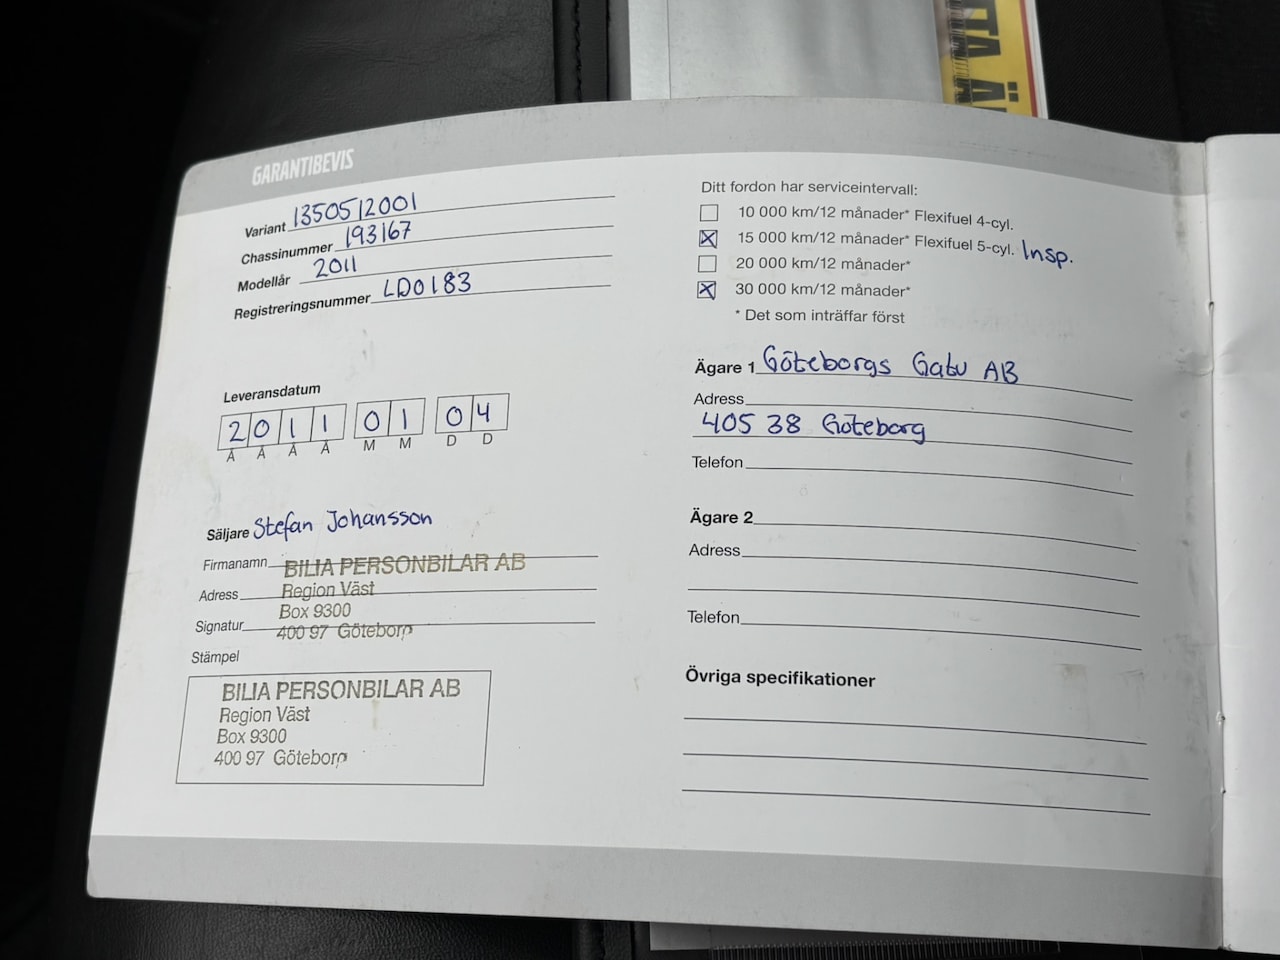 TA Ä
GARANTIBEVIS
Variant 1350512001
Chassinummer 193167
Modellår 2011
Registreringsnummer LDO183
Leveransdatum
2011 01 04
Å Å Å Å M M D D
Säljare Stefan Johansson
Firmanamn BILIA PERSONBILAR AB
Adress Region Väst
Box 9300
Signatur 400 97 Göteborg
Stämpel
BILIA PERSONBILAR AB
Region Väst
Box 9300
400 97 Göteborg
Ditt fordon har serviceintervall:
10 000 km/12 månader* Flexifuel 4-cyl.
15 000 km/12 månader* Flexifuel 5-cyl. Insp.
20 000 km/12 månader*
30 000 km/12 månader*
* Det som inträffar först
Ägare 1 Göteborgs Gatu AB
Adress
405 38 Göteborg
Telefon
Ägare 2
Adress
Telefon
Övriga specifikationer